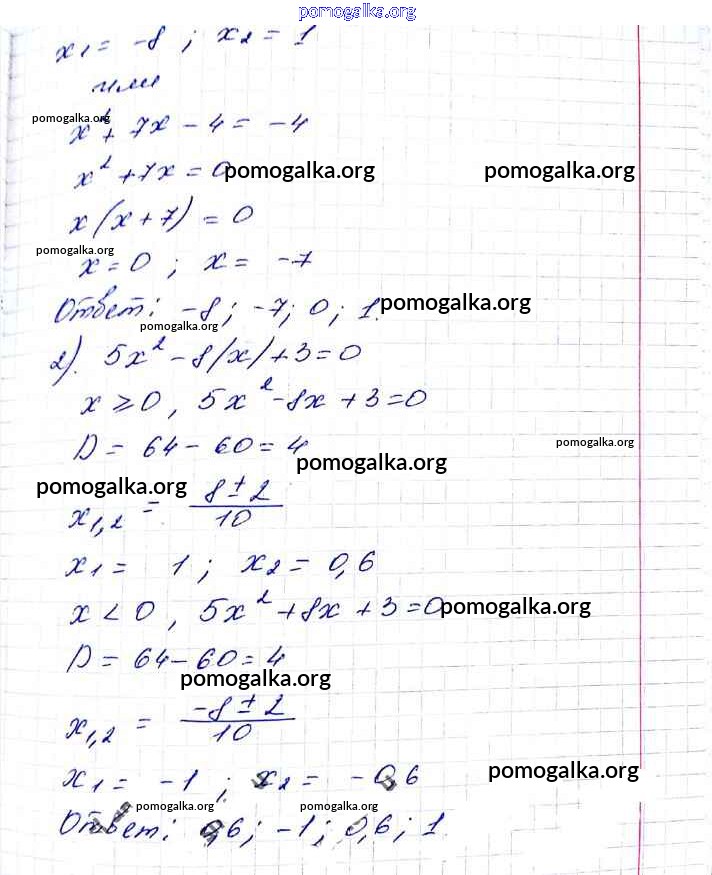 pomogalka.org
x₁ = -8 ; x₂ = 1
или
pomogalka.org
x² + 7x - 4 = -4
x² + 7x = 0 pomogalka.org pomogalka.org
x(x + 7) = 0
pomogalka.org
x = 0 ; x = -7
Ответ: -8; -7; 0; 1. pomogalka.org
pomogalka.org
2). 5x² - 8|x| + 3 = 0
x ≥ 0, 5x² - 8x + 3 = 0
D = 64 - 60 = 4 pomogalka.org
pomogalka.org
pomogalka.org
x₁,₂ = (8 ± 2)/10
x₁ = 1 ; x₂ = 0,6
x < 0, 5x² + 8x + 3 = 0 pomogalka.org
D = 64 - 60 = 4
pomogalka.org
x₁,₂ = (-8 ± 2)/10
x₁ = -1 ; x₂ = -0,6 pomogalka.org
pomogalka.org pomogalka.org
Ответ: 0,6; -1; 0,6; 1.